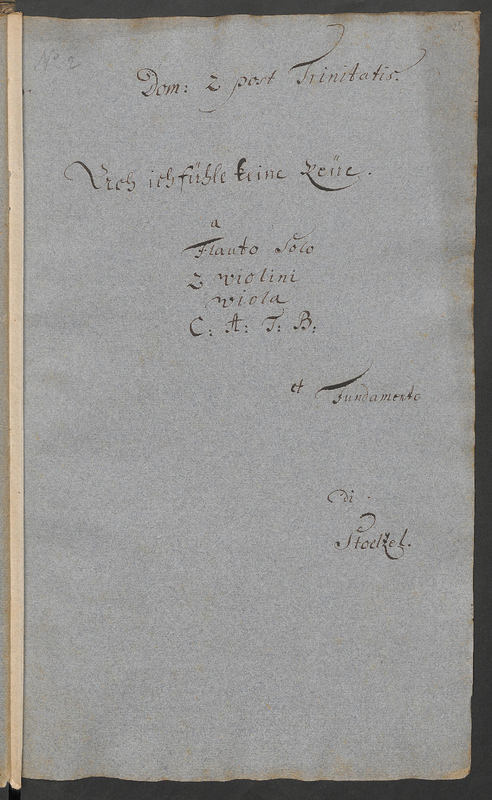 No. 2
Dom: 2 post Trinitatis.
Ach ich fühle keine Reüe.
a
Flauto Solo
2 Violini
Viola
C: A: T: B:
et Fundamento
di
Stoelzel.